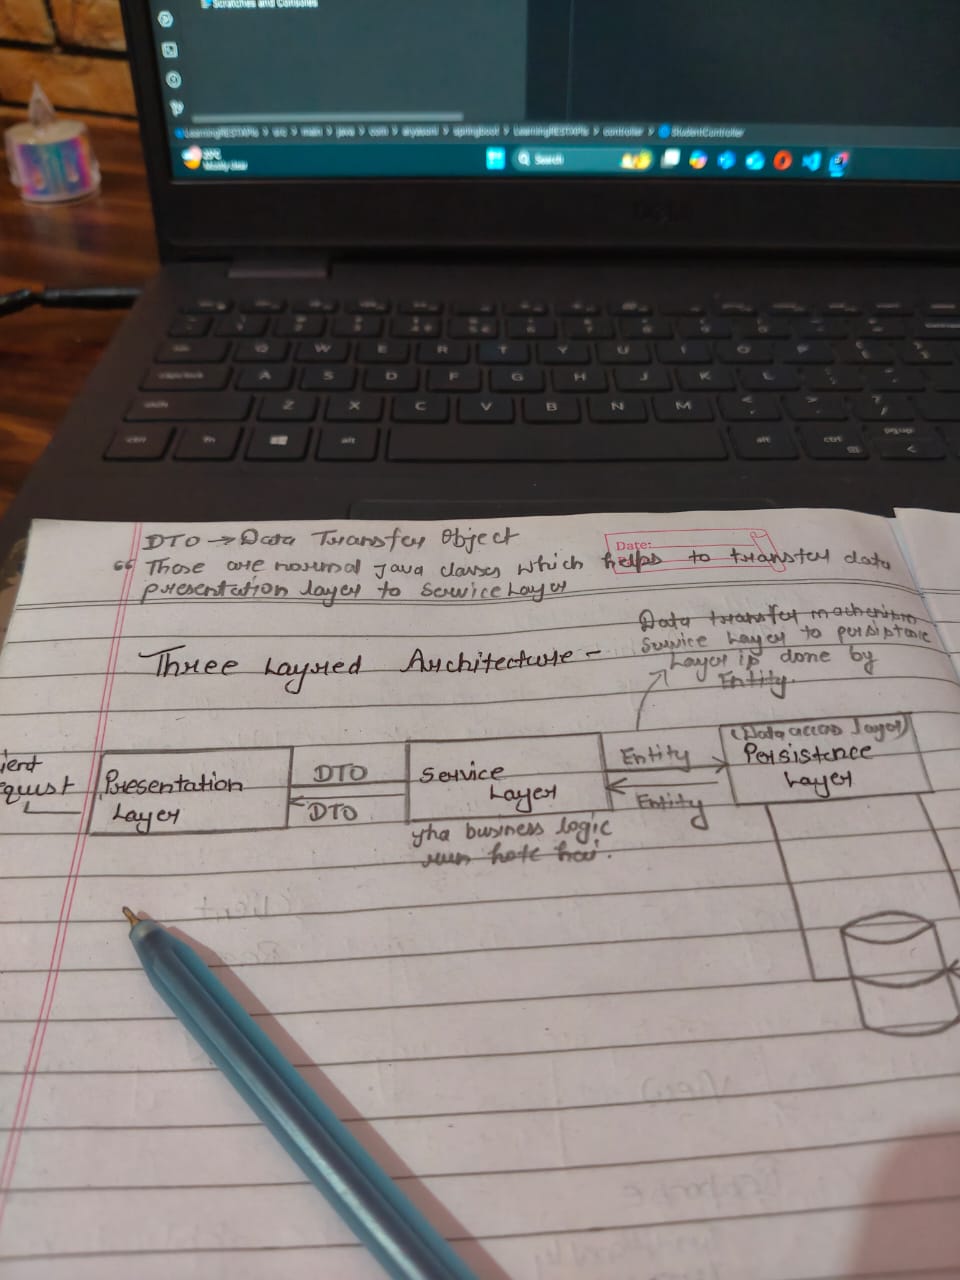 Scratches and Consoles
LearningRESTAPIs > src > main > java > com > > springboot > LearningRESTAPIs > controller > StudentController
Search
Q W E R T Y U I O P
A S D F G H J K L
Z X C V B N M
ctrl fn alt alt ctrl
DTO → Data Transfer Object
Date:
“ Those are normal Java classes which helps to transfer data
presentation layer to service Layer
Data transfer
Service Layer to persistence
Layer is done by
Entity.
Three Layred Architecture -
ient
quest
Presentation
Layer
DTO
DTO
Service
Layer
yha business logic
run hote hai.
Entity
Entity
(Data access layer)
Persistence
Layer